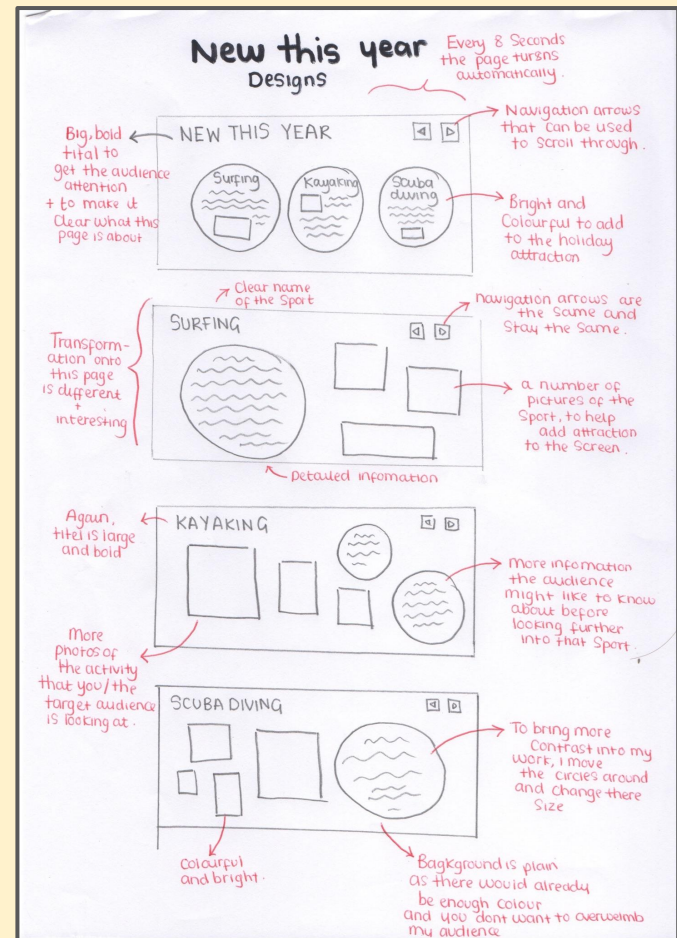 New this year
Designs
Every 8 Seconds
the page tursns
automatically.
Big, bold
tital to
get the audience
attention
+ to make it
Clear what this
page is about
NEW THIS YEAR
Navigation arrows
that can be used
to scroll through.
Surfing
Kayaking
Scuba
diving
Bright and
Colourful to add
to the holiday
attraction
Clear name
of the Sport
SURFING
navigation arrows are
the same and
Stay the same.
Transform-
ation onto
this page
is different
+
interesting
a number of
pictures of the
Sport, to help
add attraction
to the screen.
Detailed infomation
Again,
titel is large
and bold
KAYAKING
More infomation
the audience
might like to know
about before
looking further
into that Sport.
More
photos of
the activity
that you/the
target audience
is looking at.
SCUBA DIVING
To bring more
Contrast into my
work, i move
the circles around
and change there
Size
Colourful
and bright.
Bagkground is plain
as there would already
be enough colour
and you dont want to overwelmb
my audience